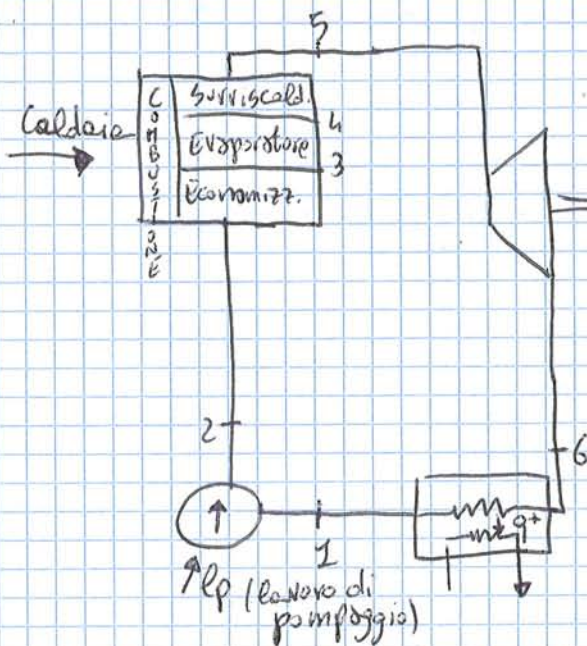 5
Caldaia
COMBUSTIONE
Surriscald.
4
Evaporatore
3
Economizz.
2
6
q+
1
lp (lavoro di
pompaggio)